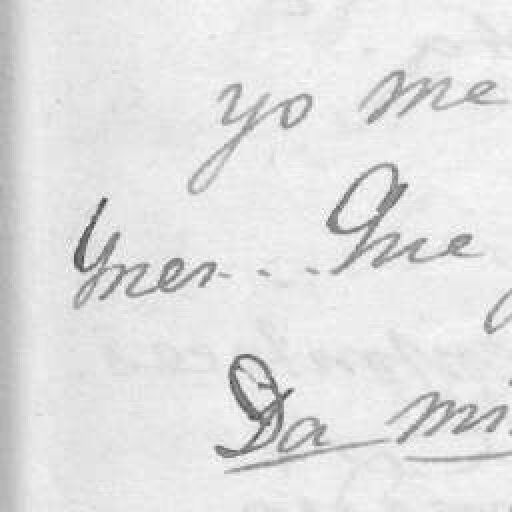 yo me
Ynes... Que
Da mi